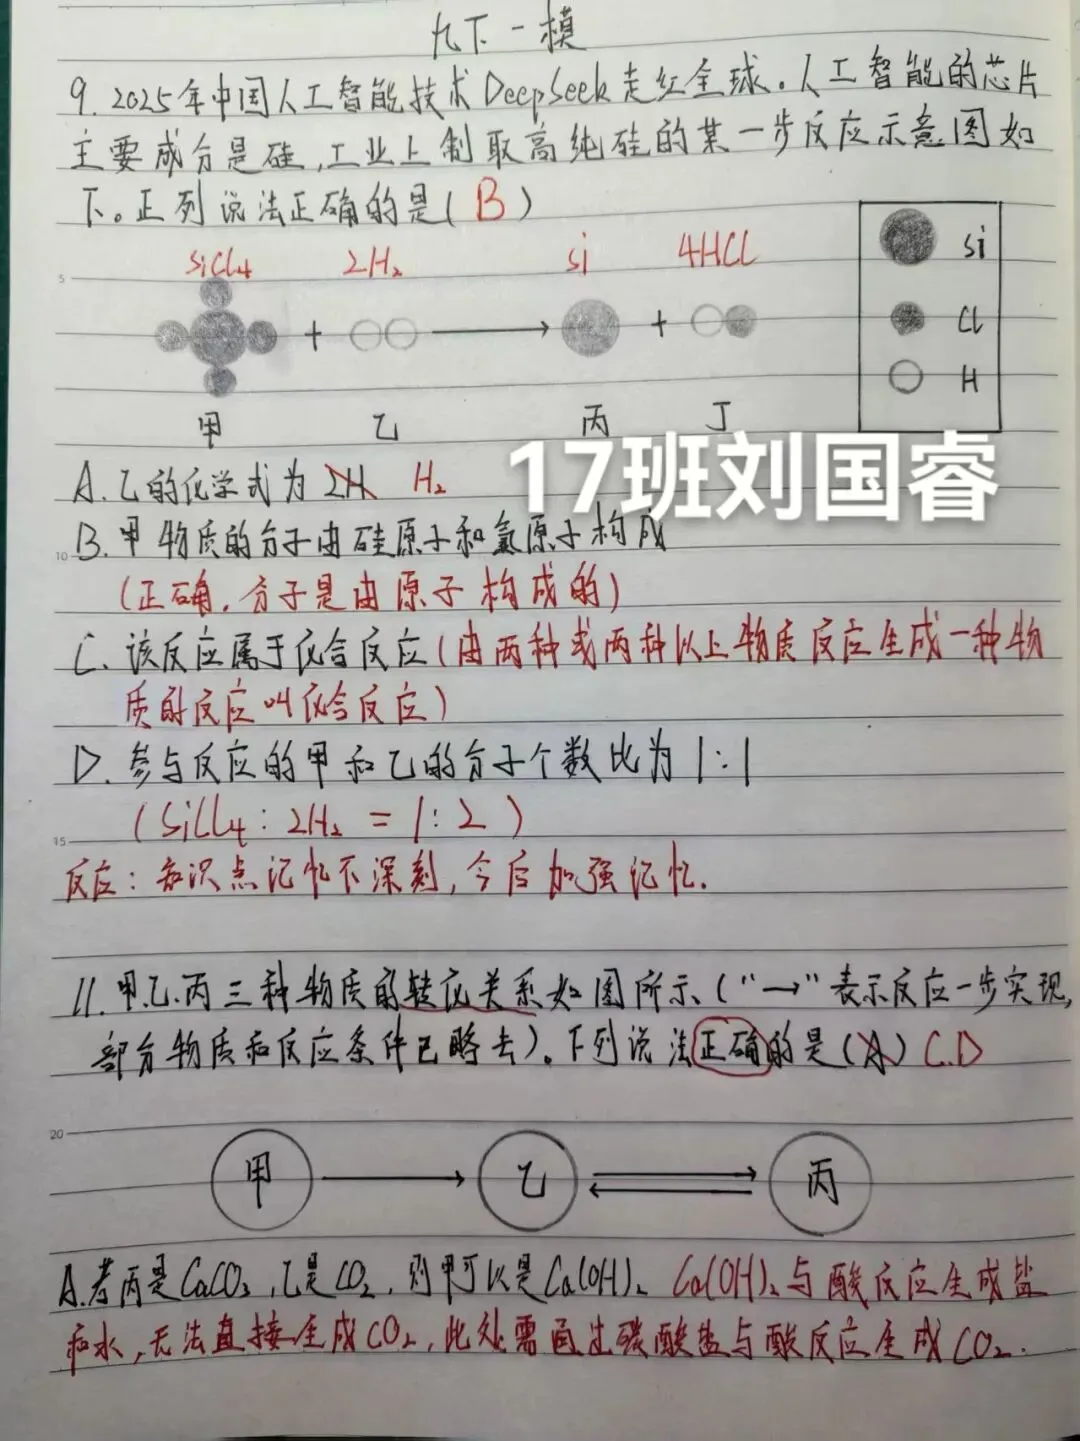 九下一模
9. 2025年中国人工智能技术DeepSeek走红全球。人工智能的芯片
主要成分是硅,工业上制取高纯硅的某一步反应示意图如
下。下列说法正确的是( B )
SiCl4 2H2 Si 4HCl
+ + 
甲 乙 丙 丁
Si
Cl
H
17班刘国睿
A. 乙的化学式为2H H2
B. 甲物质的分子由硅原子和氯原子构成
(正确,分子是由原子构成的)
C. 该反应属于化合反应(由两种或两种以上物质反应生成一种物
质的反应叫化合反应)
D. 参与反应的甲和乙的分子个数比为1:1
(SiCl4 : 2H2 = 1:2)
反应:知识点记忆不深刻,今后加强记忆.
11. 甲.乙.丙三种物质的转化关系如图所示("→"表示反应一步实现,
部分物质和反应条件已略去)。下列说法正确的是(A) C.D
甲 乙 丙
A. 若丙是CaCO3,乙是CO2,则甲可以是Ca(OH)2 Ca(OH)2与酸反应生成盐
和水,无法直接生成CO2,此处需通过碳酸盐与酸反应生成CO2.
5
10
15
20